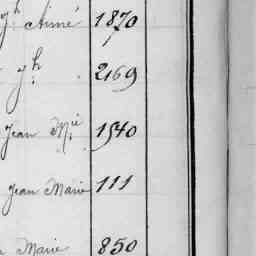 Jh Aimé 1870
Jh 2169
Jean Mie 1540
Jean Marie 111
Marie 850